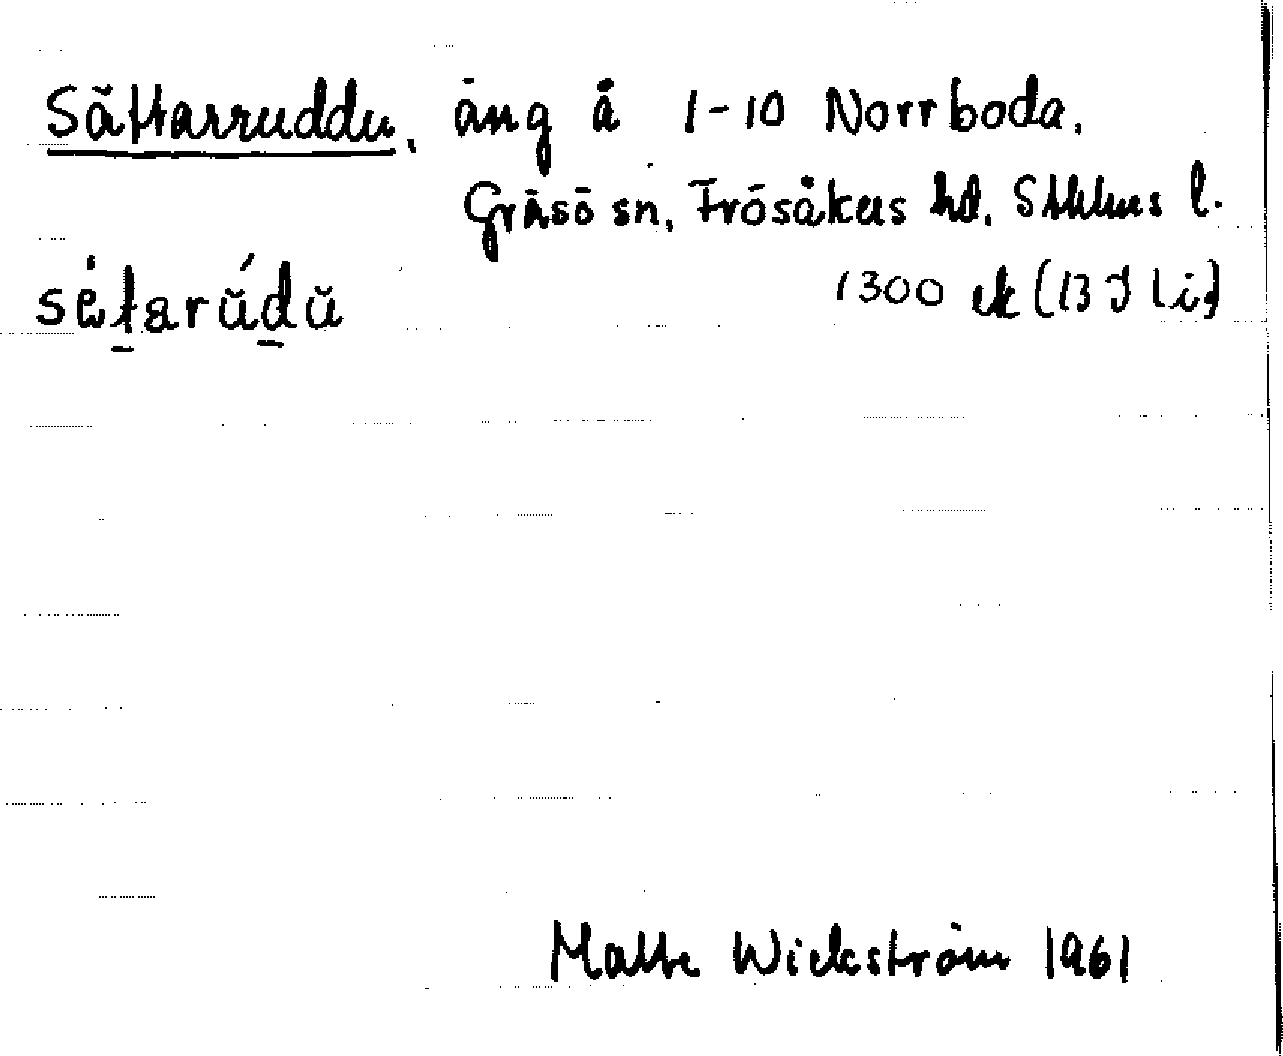 Sättarruddu, äng å 1-10 Norrboda,
Gräsö sn, Frösåkers hd, Sthlms l.
1300 ek (13 I Lid)
Malte Wickström 1961